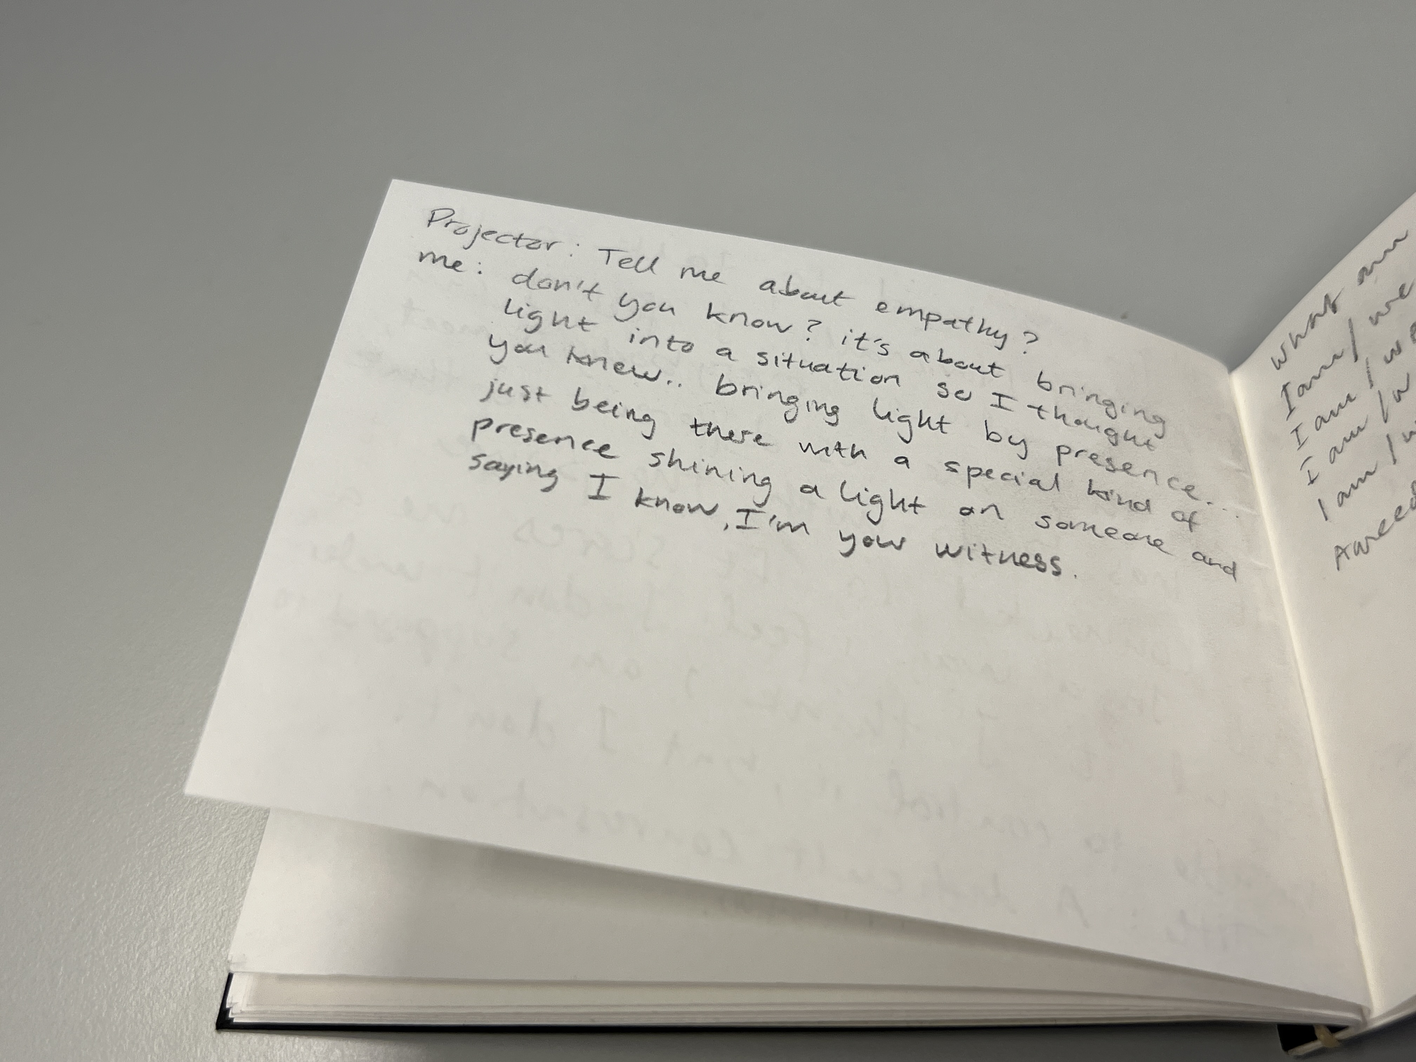 Projector: Tell me about empathy?
me: don't you know? it's about bringing
light into a situation so I thought
you knew.. bringing light by presence...
just being there with a special kind of
presence shining a light on someone and
saying I know, I'm your witness.
what am
I am / we
I am / we
I am / w
I am /
Agreed